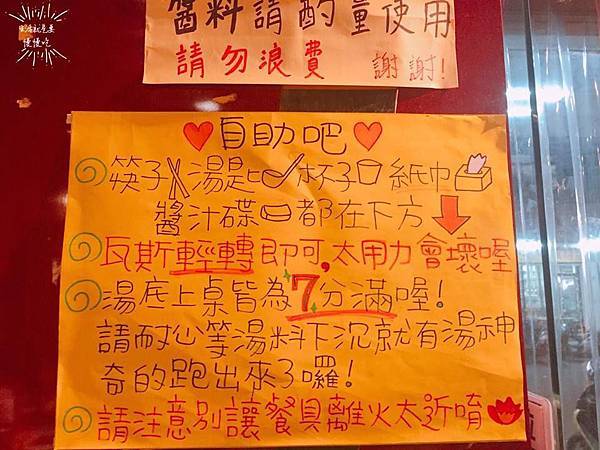 生活就是要
慢慢吃
醬料請酌量使用
請勿浪費 謝謝!
自助吧
筷子湯匙杯子紙巾
醬汁碟都在下方
瓦斯輕轉即可,太用力會壞喔
湯底上桌皆為7分滿喔!
請耐心等湯料下沉就有湯神
奇的跑出來了囉!
請注意別讓餐具離火太近唷